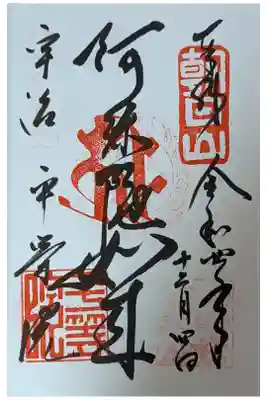 奉拝
令和四年
十二月四日
朝日山
阿弥陀如来
宇治 平等院